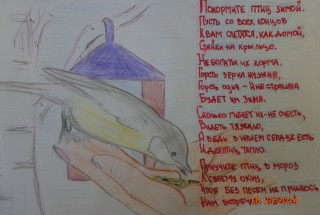 Покормите птиц зимой.
Пусть со всех концов
К вам слетятся, как домой,
Стайки на крыльцо.
Не богаты их корма.
Горсть зерна нужна,
Горсть одна - и не страшна
Будет им зима.
Сколько гибнет их - не счесть,
Видеть тяжело,
А ведь в нашем сердце есть
И для птиц тепло.
Приучите птиц в мороз
К своему окну,
Чтоб без песен не пришлось
Нам встречать